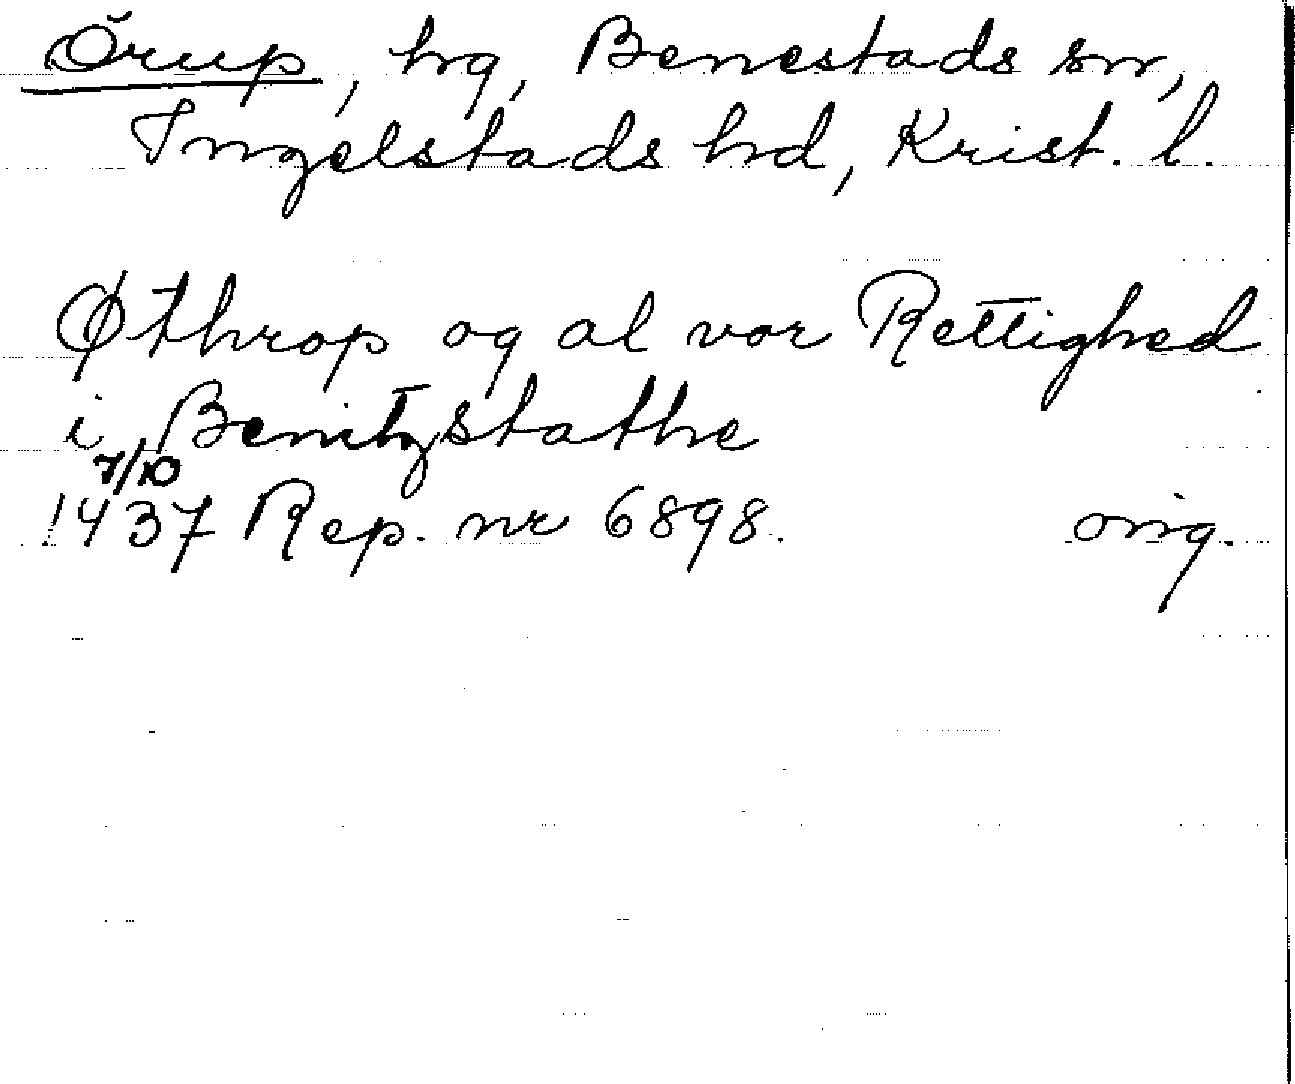 Örup, hg, Benestads sn,
Ingelstads hd, Krist. l.
Øthrop og al vor Rettighed
i Benitzstathe
7/10
1437 Rep. nr 6898. orig.